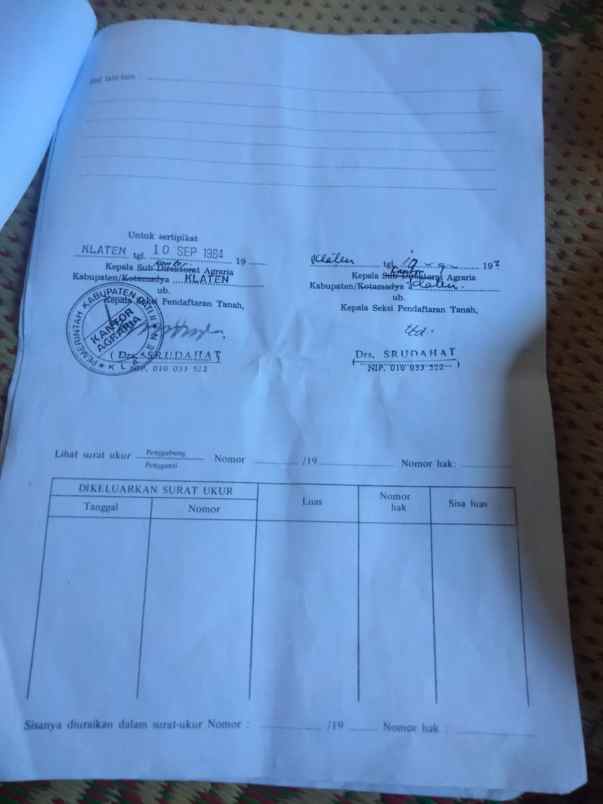 Hal lain-lain
Untuk sertipikat
KLATEN tgl. 10 SEP 1984 19
Kantor
Kepala Sub Direktorat Agraria
Kabupaten/Kotamadya ....KLATEN
ub.
Kepala Seksi Pendaftaran Tanah,
PEMERINTAH KABUPATEN
KANTOR
AGRARIA
* KLA
( Drs. SRUDAHAT
NIP. 010 033 522
Klaten tgl. 19
Kantor
Kepala Sub Direktorat Agraria
Kabupaten/Kotamadya Klaten.
ub.
Kepala Seksi Pendaftaran Tanah,
ttd.
Drs. SRUDAHAT
( )
NIP. 010 033 522
Lihat surat ukur Penggabung Nomor /19 Nomor hak:
Pengganti
DIKELUARKAN SURAT UKUR
Tanggal
Nomor
Luas
Nomor
hak
Sisa luas
Sisanya diuraikan dalam surat-ukur Nomor : /19 Nomor hak :